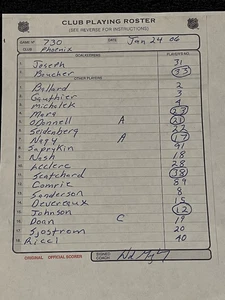 CLUB PLAYING ROSTER
(SEE REVERSE FOR INSTRUCTIONS)
GAME Nº 730 DATE Jan 24 06
CLUB Phoenix
GOALKEEPERS PLAYERS NO.
Joseph 31
Boucher 33
OTHER PLAYERS
Ballard 2
Gauthier 3
Michalek 4
Mara 23
ODonnell A 21
Seidenberg 22
Nagy A 17
Saprykin 91
Nash 18
Leclerc 28
Scatchard 38
Comrie 89
Sanderson 8
Devereaux 15
Johnson 12
Doan C 19
Sjostrom 20
Ricci 40
ORIGINAL OFFICIAL SCORER SIGNED